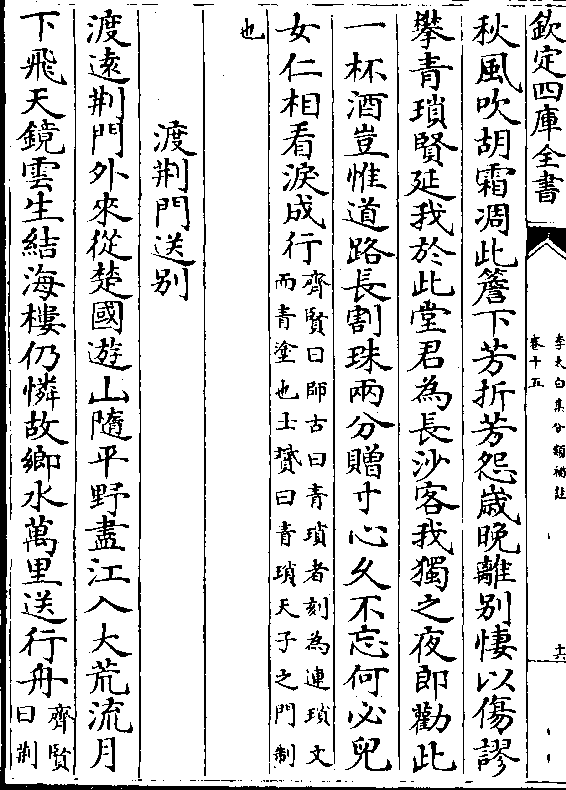 欽定四庫全書
李太白集分類補註
卷十五
十六
秋風吹胡霜凋此簷下芳折芳怨歲晚離別悽以傷謬
攀青瑣賢延我於此堂君為長沙客我獨之夜郎勸此
一杯酒豈惟道路長割珠兩分贈寸心久不忘何必兒
女仁相看淚成行
齊賢曰師古曰青瑣者刻為連瑣文
而青塗也士贇曰青瑣天子之門制
也
渡荆門送別
渡遠荆門外來從楚國遊山隨平野盡江入大荒流月
下飛天鏡雲生結海樓仍憐故鄉水萬里送行舟
齊賢
曰荆